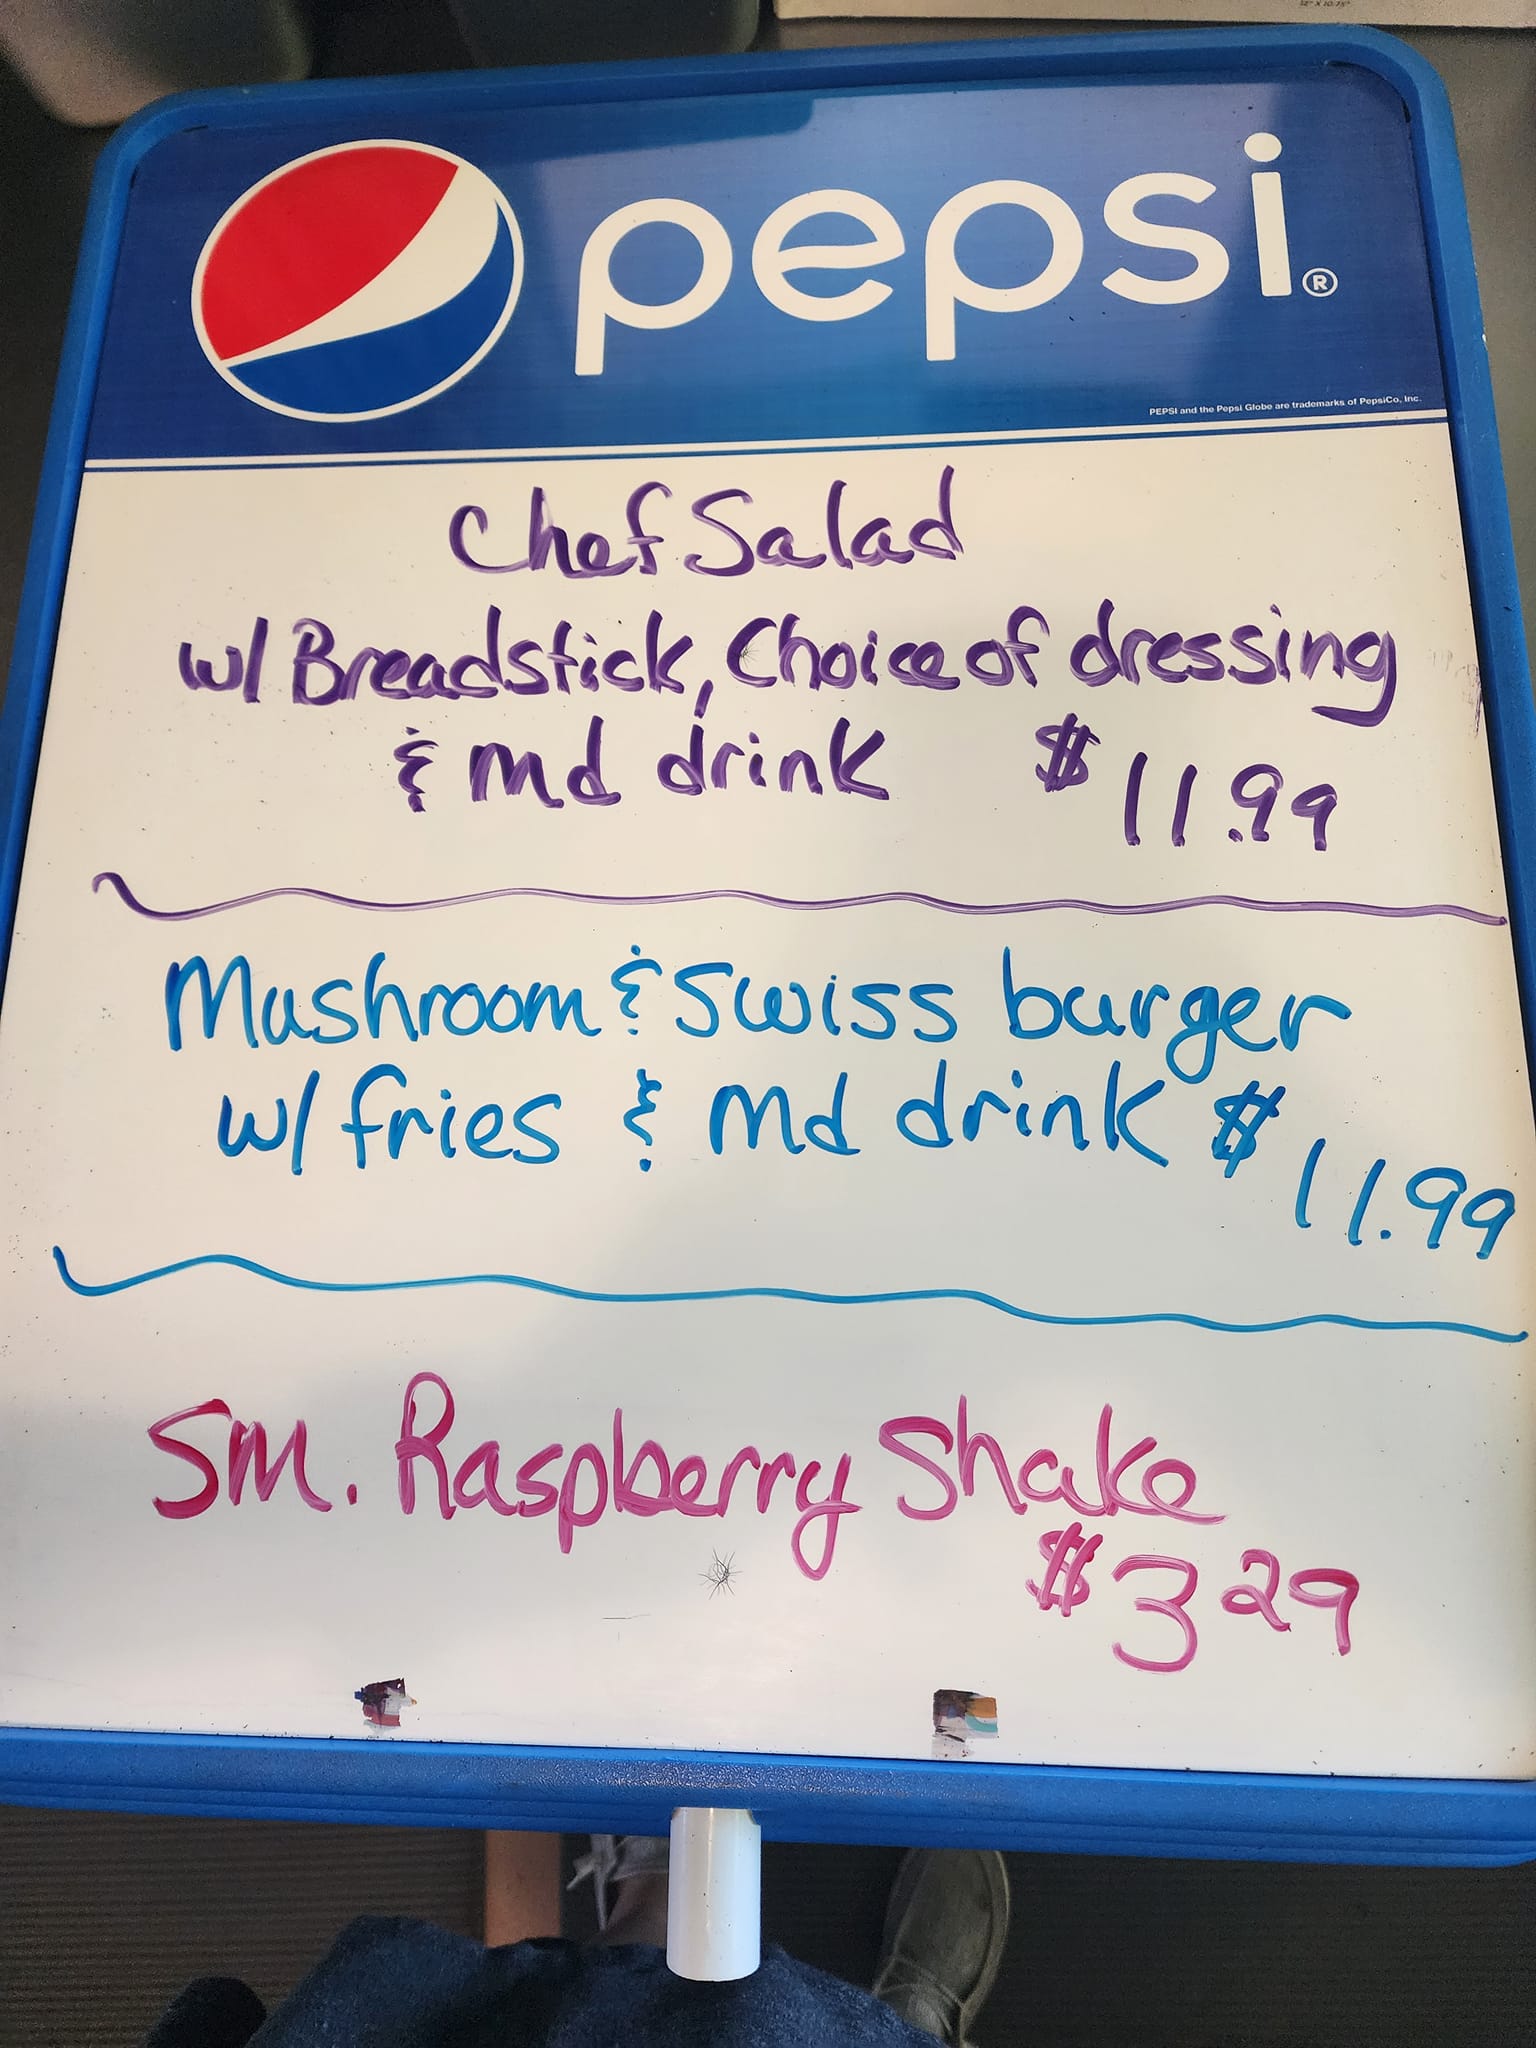 12" X 10.75"
pepsi®
PEPSI and the Pepsi Globe are trademarks of PepsiCo, Inc.
Chef Salad
w/ Breadstick, Choice of dressing
& md drink $11.99
Mushroom & Swiss burger
w/ fries & md drink $11.99
Sm. Raspberry Shake
$3 29